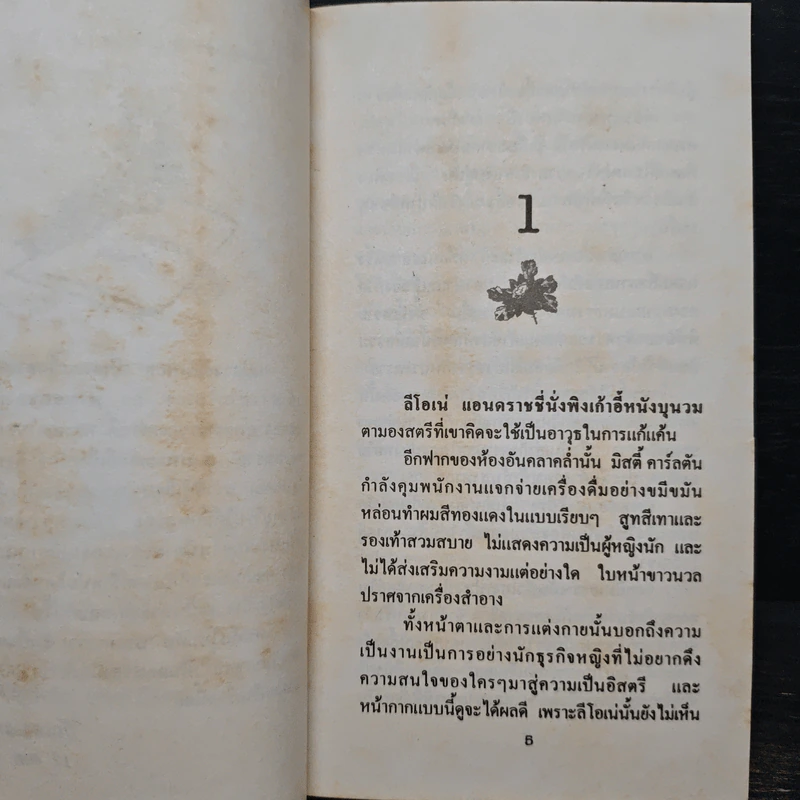 1
ลีโอเน่ แอนดราชชี่นั่งพิงเก้าอี้หนังบุนวม
ตามองสตรีที่เขาคิดจะใช้เป็นอาวุธในการแก้แค้น
อีกฟากของห้องอันคลาคล่ำนั้น มิสตี้ คาร์ลตัน
กำลังคุมพนักงานแจกจ่ายเครื่องดื่มอย่างขมีขมัน
หล่อนทำผมสีทองแดงในแบบเรียบๆ สูทสีเทาและ
รองเท้าสวมสบาย ไม่แสดงความเป็นผู้หญิงนัก และ
ไม่ได้ส่งเสริมความงามแต่อย่างใด ใบหน้าขาวนวล
ปราศจากเครื่องสำอาง
ทั้งหน้าตาและการแต่งกายนั้นบอกถึงความ
เป็นงานเป็นการอย่างนักธุรกิจหญิงที่ไม่อยากดึง
ความสนใจของใครๆมาสู่ความเป็นอิสตรี และ
หน้ากากแบบนี้ดูจะได้ผลดี เพราะลีโอเน่นั้นยังไม่เห็น
5